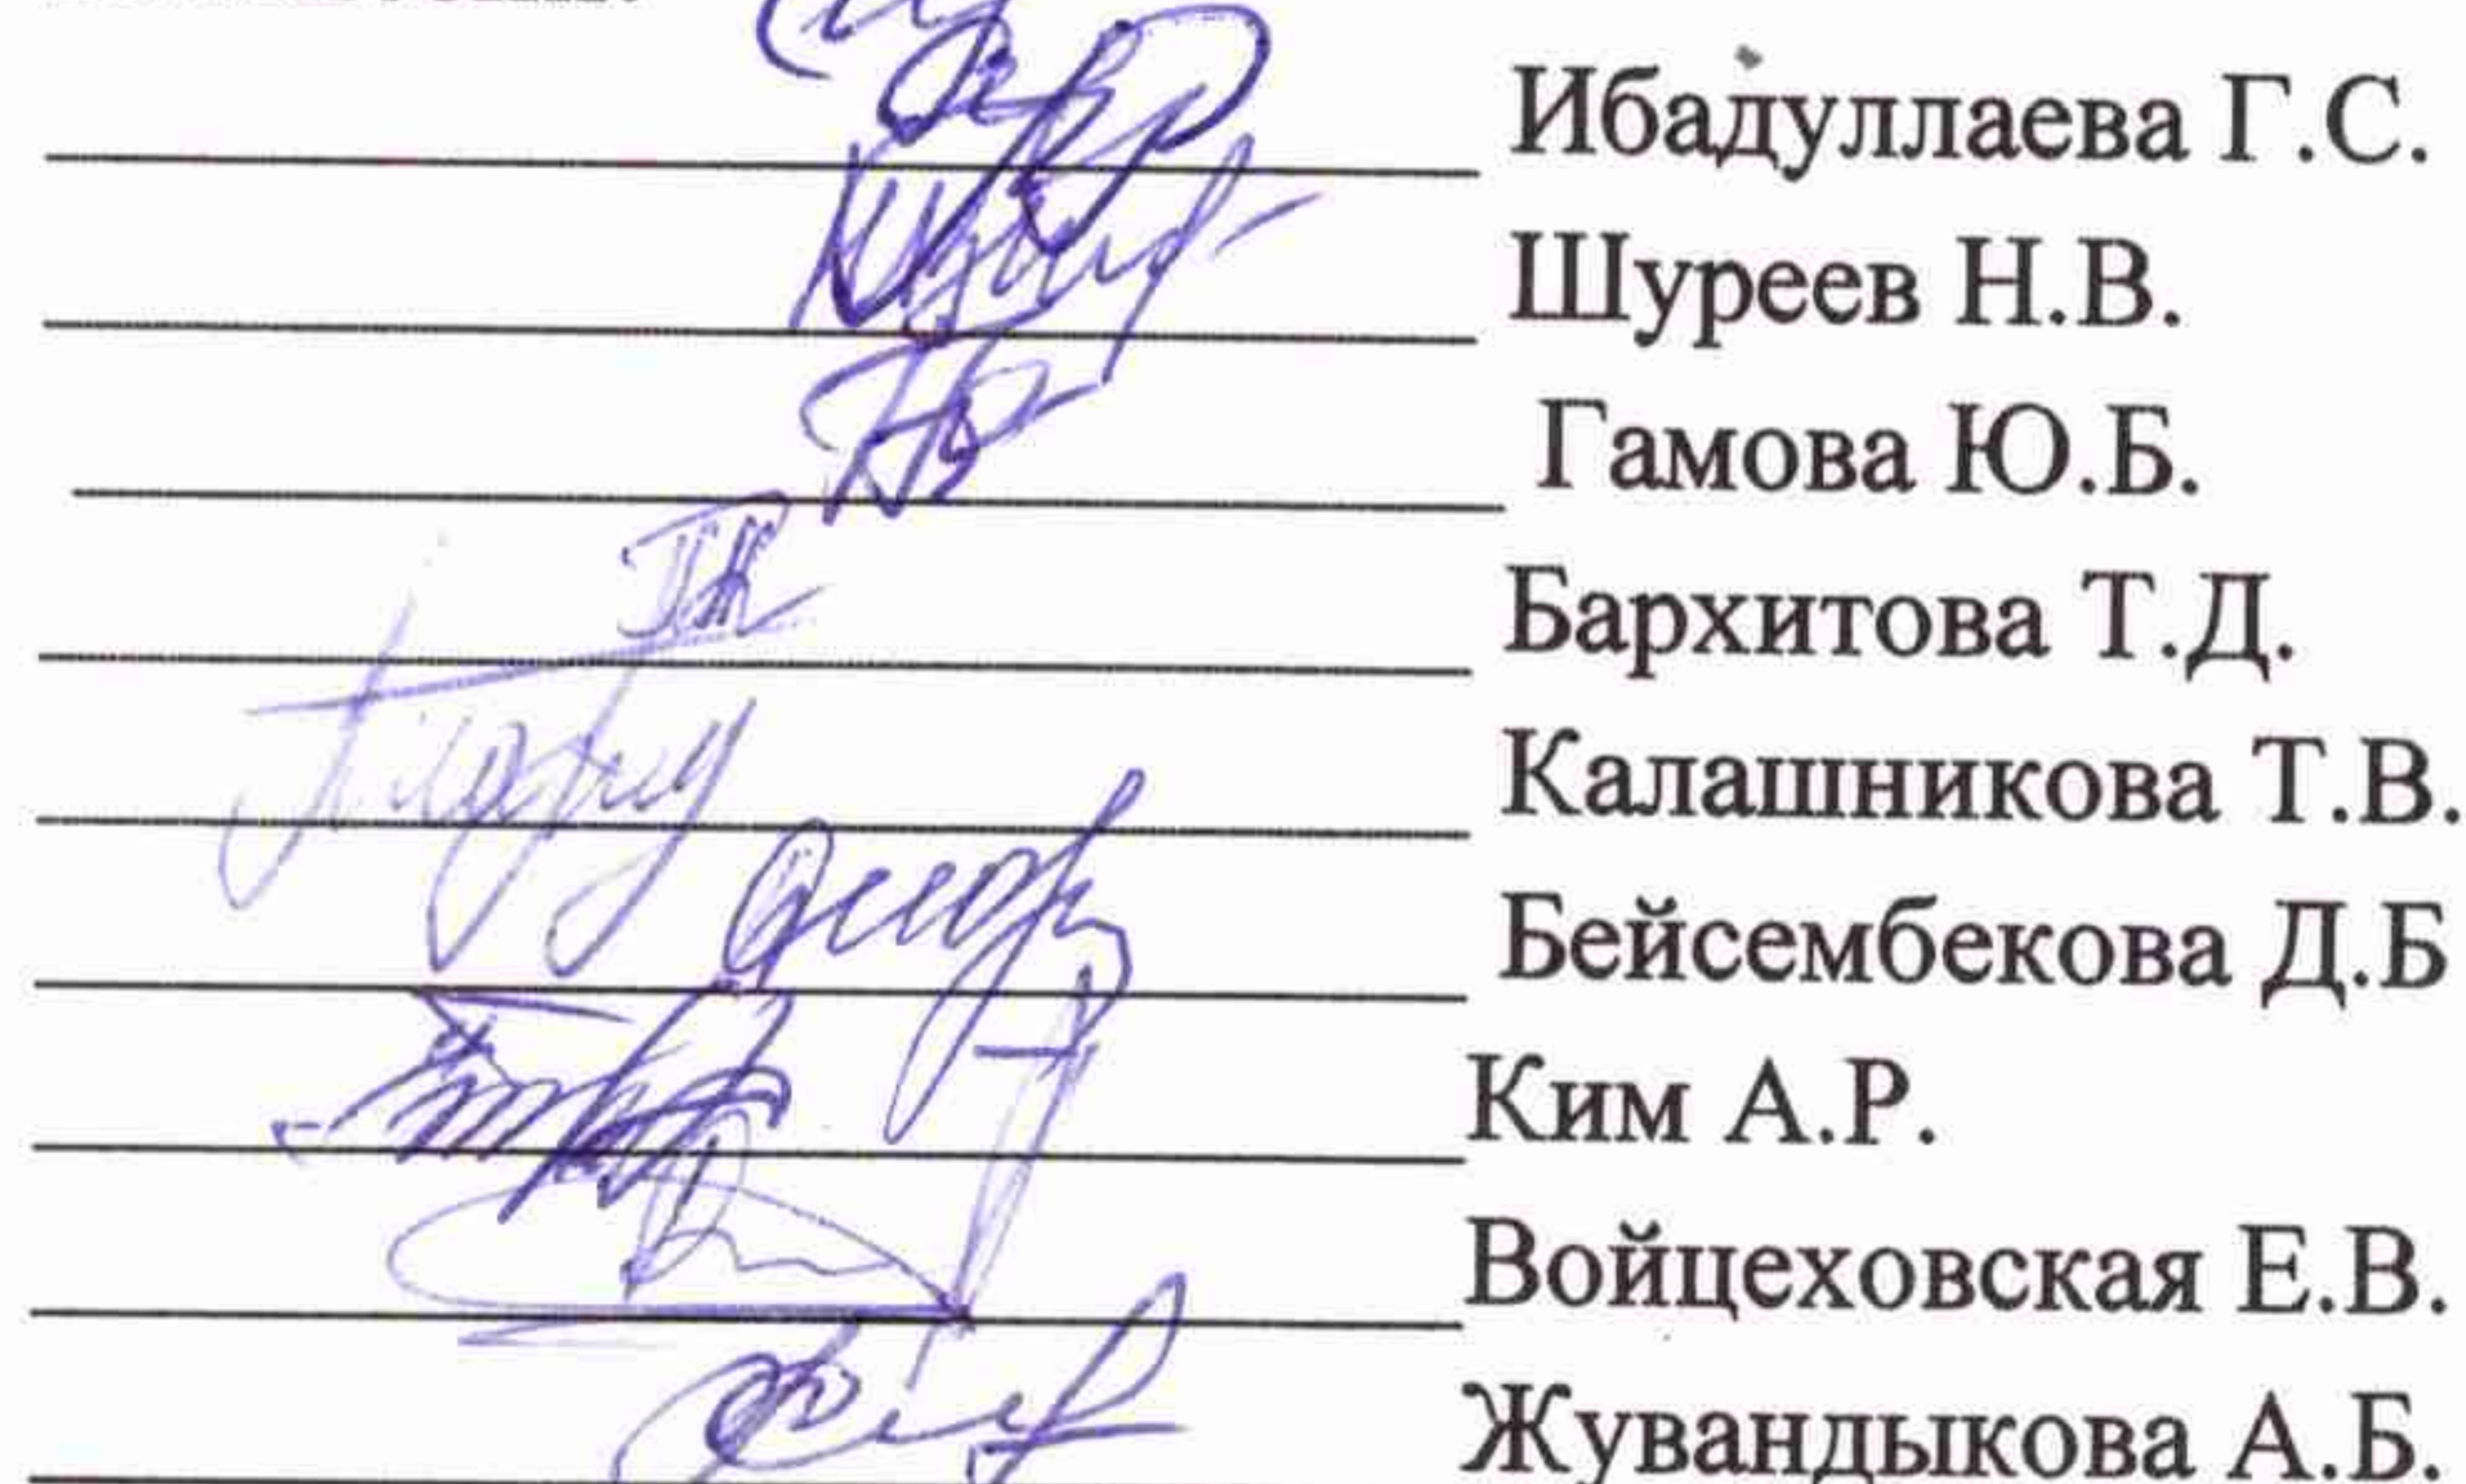 Ибадуллаева Г.С.
Шуреев Н.В.
Гамова Ю.Б.
Бархитова Т.Д.
Калашникова Т.В.
Бейсембекова Д.Б
Ким А.Р.
Войцеховская Е.В.
Жувандыкова А.Б.